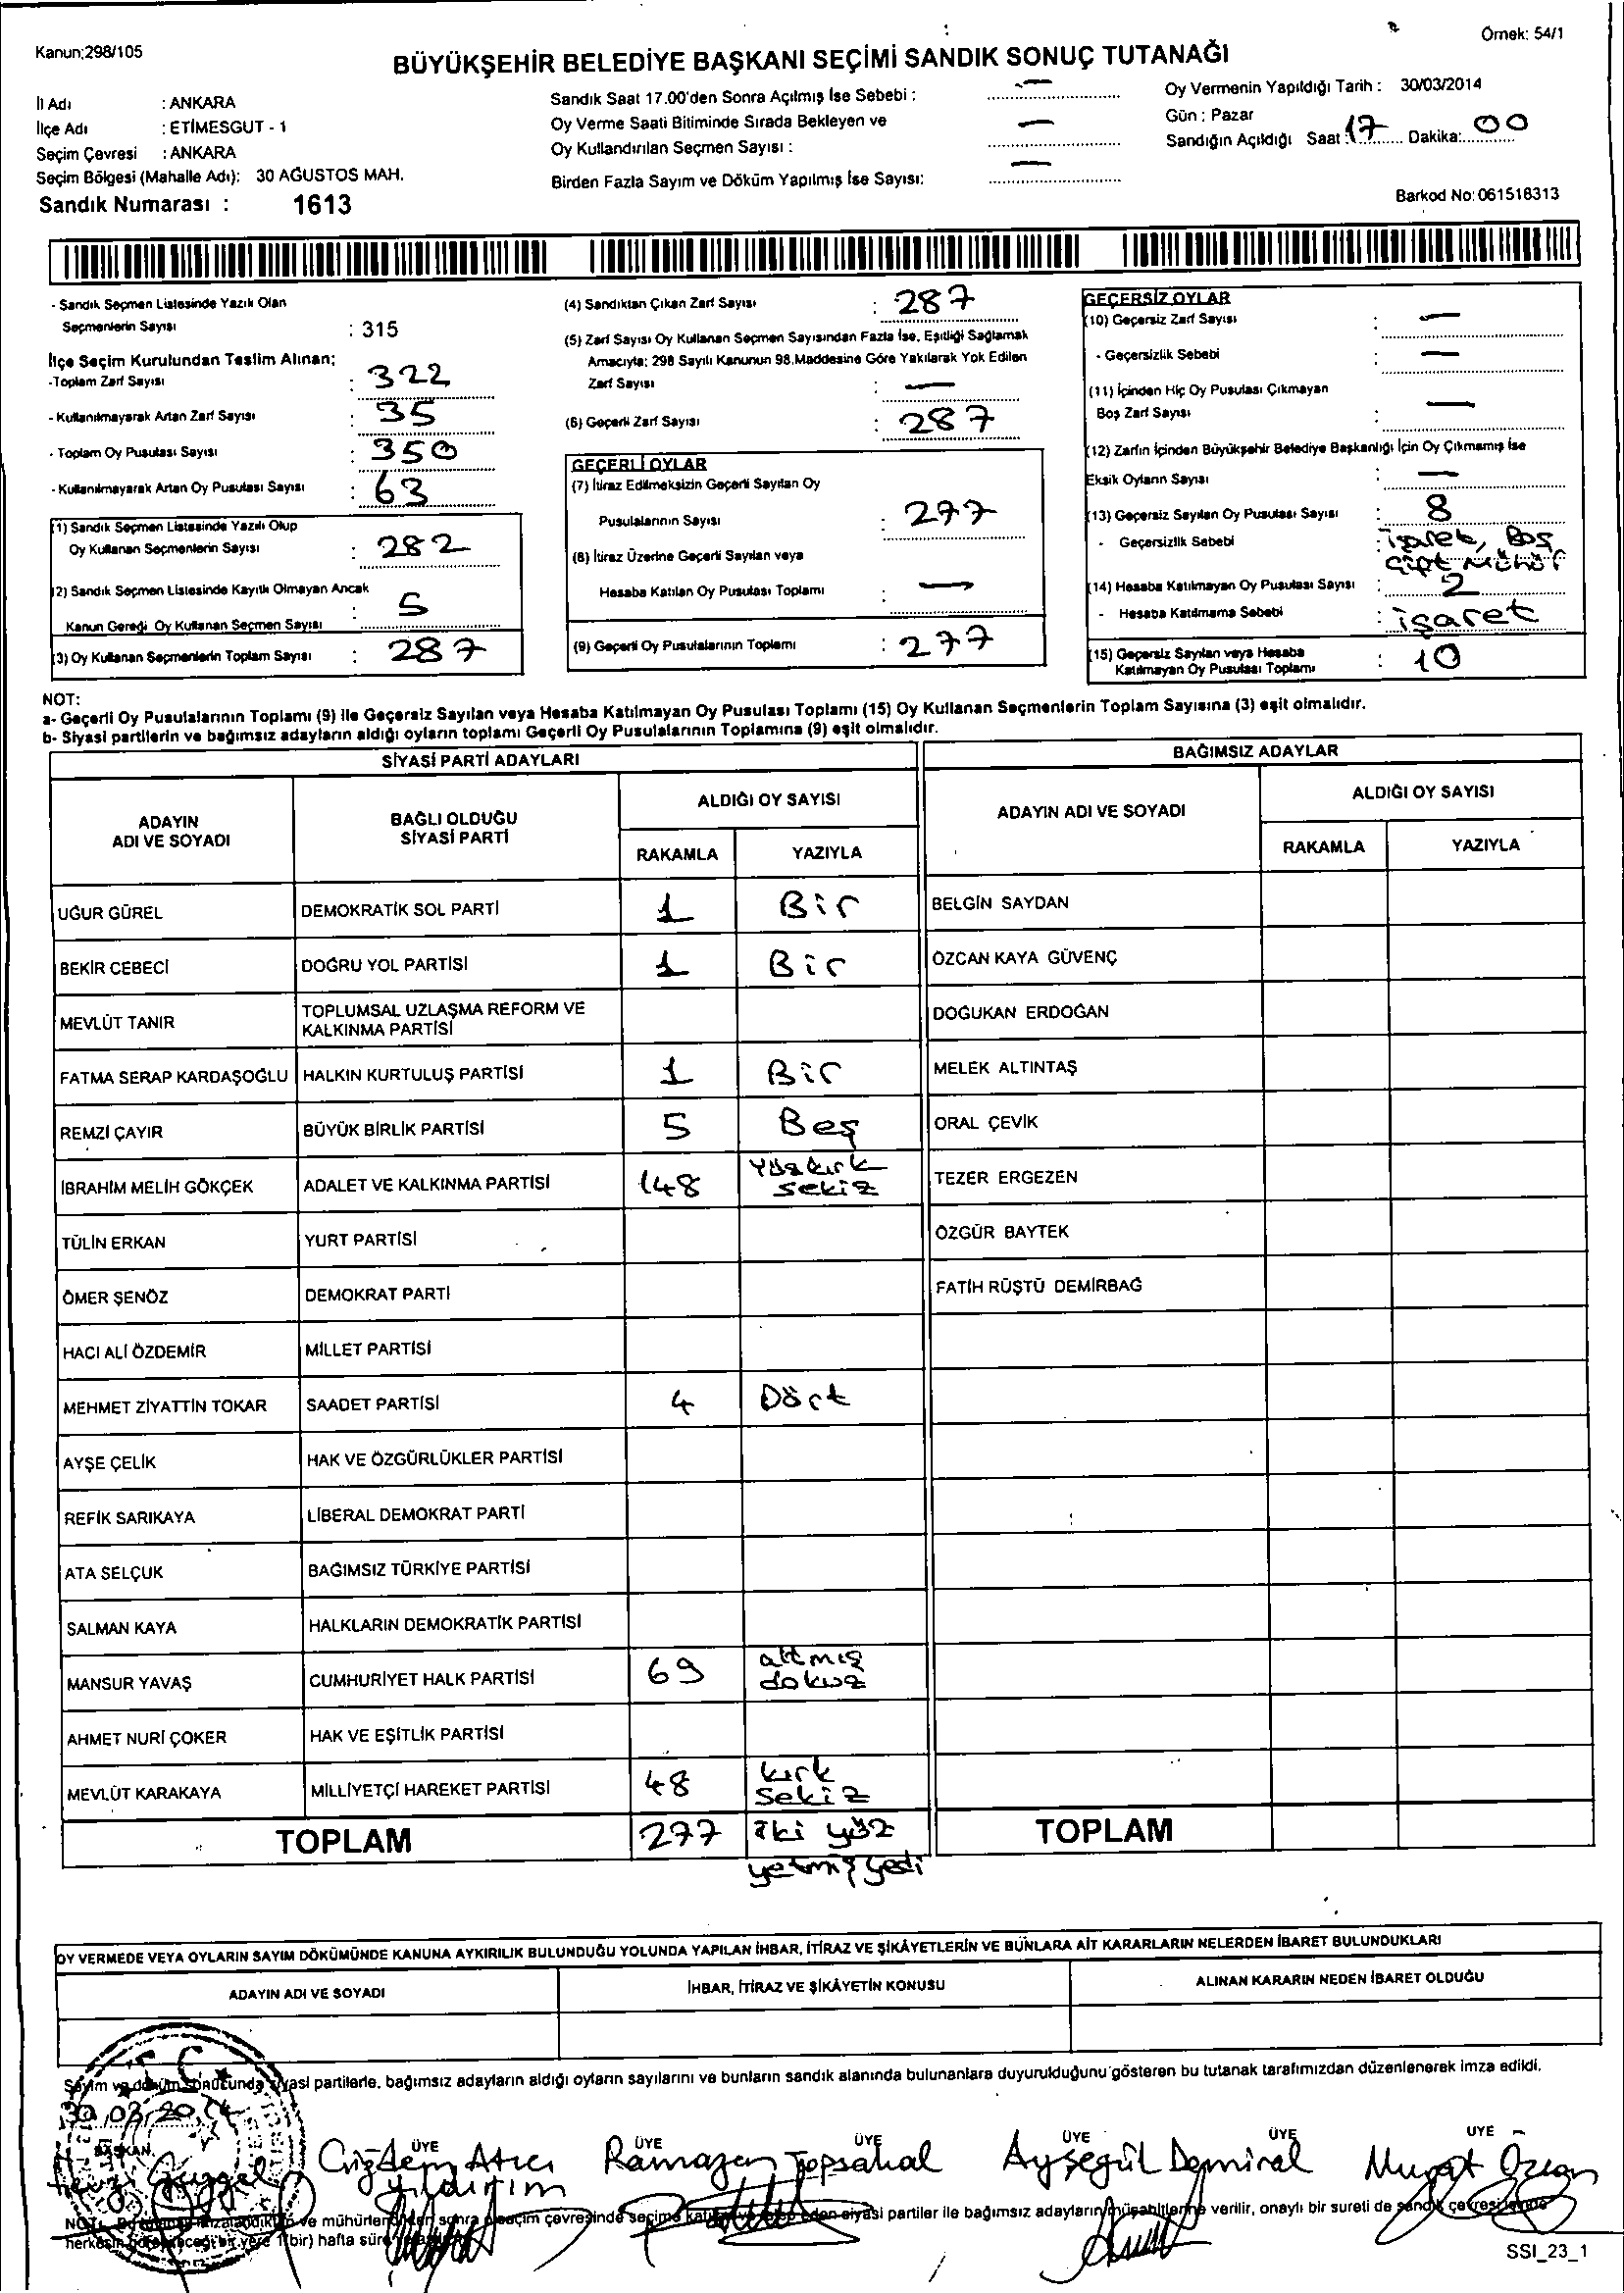 Kanun;298/105
Örnek: 54/1
BÜYÜKŞEHİR BELEDİYE BAŞKANI SEÇİMİ SANDIK SONUÇ TUTANAĞI
İl Adı : ANKARA
İlçe Adı : ETİMESGUT - 1
Seçim Çevresi : ANKARA
Seçim Bölgesi (Mahalle Adı): 30 AĞUSTOS MAH.
Sandık Numarası : 1613
Sandık Saat 17.00'den Sonra Açılmış İse Sebebi : —
Oy Verme Saati Bitiminde Sırada Bekleyen ve
Oy Kullandırılan Seçmen Sayısı : —
Birden Fazla Sayım ve Döküm Yapılmış İse Sayısı: —
Oy Vermenin Yapıldığı Tarih : 30/03/2014
Gün : Pazar
Sandığın Açıldığı Saat : 17 Dakika: 00
Barkod No: 061518313
- Sandık Seçmen Listesinde Yazılı Olan
Seçmenlerin Sayısı : 315
İlçe Seçim Kurulundan Teslim Alınan;
-Toplam Zarf Sayısı : 322
- Kullanılmayarak Artan Zarf Sayısı : 35
- Toplam Oy Pusulası Sayısı : 350
- Kullanılmayarak Artan Oy Pusulası Sayısı : 63
(1) Sandık Seçmen Listesinde Yazılı Olup
Oy Kullanan Seçmenlerin Sayısı : 282
(2) Sandık Seçmen Listesinde Kayıtlı Olmayan Ancak
Kanun Gereği Oy Kullanan Seçmen Sayısı : 5
(3) Oy Kullanan Seçmenlerin Toplam Sayısı : 287
(4) Sandıktan Çıkan Zarf Sayısı : 287
(5) Zarf Sayısı Oy Kullanan Seçmen Sayısından Fazla İse, Eşitliği Sağlamak
Amacıyla; 298 Sayılı Kanunun 98.Maddesine Göre Yakılarak Yok Edilen
Zarf Sayısı : —
(6) Geçerli Zarf Sayısı : 287
GEÇERLİ OYLAR
(7) İtiraz Edilmeksizin Geçerli Sayılan Oy
Pusulalarının Sayısı : 277
(8) İtiraz Üzerine Geçerli Sayılan veya
Hesaba Katılan Oy Pusulası Toplamı : —
(9) Geçerli Oy Pusulalarının Toplamı : 277
GEÇERSİZ OYLAR
(10) Geçersiz Zarf Sayısı : —
- Geçersizlik Sebebi : —
(11) İçinden Hiç Oy Pusulası Çıkmayan
Boş Zarf Sayısı : —
(12) Zarfın İçinden Büyükşehir Belediye Başkanlığı İçin Oy Çıkmamış İse
Eksik Oyların Sayısı : —
(13) Geçersiz Sayılan Oy Pusulası Sayısı : 8
- Geçersizlik Sebebi : işaret, Boş
Çift Mühür
(14) Hesaba Katılmayan Oy Pusulası Sayısı : 2
- Hesaba Katılmama Sebebi : işaret
(15) Geçersiz Sayılan veya Hesaba
Katılmayan Oy Pusulası Toplamı : 10
NOT:
a- Geçerli Oy Pusulalarının Toplamı (9) ile Geçersiz Sayılan veya Hesaba Katılmayan Oy Pusulası Toplamı (15) Oy Kullanan Seçmenlerin Toplam Sayısına (3) eşit olmalıdır.
b- Siyasi partilerin ve bağımsız adayların aldığı oyların toplamı Geçerli Oy Pusulalarının Toplamına (9) eşit olmalıdır.
SİYASİ PARTİ ADAYLARI
ADAYIN
ADI VE SOYADI
BAĞLI OLDUĞU
SİYASİ PARTİ
ALDIĞI OY SAYISI
RAKAMLA YAZIYLA
UĞUR GÜREL DEMOKRATİK SOL PARTİ 1 Bir
BEKİR CEBECİ DOĞRU YOL PARTİSİ 1 Bir
MEVLÜT TANIR TOPLUMSAL UZLAŞMA REFORM VE
KALKINMA PARTİSİ
FATMA SERAP KARDAŞOĞLU HALKIN KURTULUŞ PARTİSİ 1 Bir
REMZİ ÇAYIR BÜYÜK BİRLİK PARTİSİ 5 Beş
İBRAHİM MELİH GÖKÇEK ADALET VE KALKINMA PARTİSİ 148 Yüzkırk
sekiz
TÜLİN ERKAN YURT PARTİSİ
ÖMER ŞENÖZ DEMOKRAT PARTİ
HACI ALİ ÖZDEMİR MİLLET PARTİSİ
MEHMET ZİYATTİN TOKAR SAADET PARTİSİ 4 Dört
AYŞE ÇELİK HAK VE ÖZGÜRLÜKLER PARTİSİ
REFİK SARIKAYA LİBERAL DEMOKRAT PARTİ
ATA SELÇUK BAĞIMSIZ TÜRKİYE PARTİSİ
SALMAN KAYA HALKLARIN DEMOKRATİK PARTİSİ
MANSUR YAVAŞ CUMHURİYET HALK PARTİSİ 69 altmış
dokuz
AHMET NURİ ÇOKER HAK VE EŞİTLİK PARTİSİ
MEVLÜT KARAKAYA MİLLİYETÇİ HAREKET PARTİSİ 48 kırk
sekiz
TOPLAM 277 iki yüz
yetmiş yedi
BAĞIMSIZ ADAYLAR
ADAYIN ADI VE SOYADI
ALDIĞI OY SAYISI
RAKAMLA YAZIYLA
BELGİN SAYDAN
ÖZCAN KAYA GÜVENÇ
DOĞUKAN ERDOĞAN
MELEK ALTINTAŞ
ORAL ÇEVİK
TEZER ERGEZEN
ÖZGÜR BAYTEK
FATİH RÜŞTÜ DEMİRBAĞ
TOPLAM
OY VERMEDE VEYA OYLARIN SAYIM DÖKÜMÜNDE KANUNA AYKIRILIK BULUNDUĞU YOLUNDA YAPILAN İHBAR, İTİRAZ VE ŞİKÂYETLERİN VE BUNLARA AİT KARARLARIN NELERDEN İBARET BULUNDUKLARI
ADAYIN ADI VE SOYADI İHBAR, İTİRAZ VE ŞİKÂYETİN KONUSU ALINAN KARARIN NEDEN İBARET OLDUĞU
T.C.
Sayım ve döküm sonucunda siyasi partilerle, bağımsız adayların aldığı oyların sayılarını ve bunların sandık alanında bulunanlara duyurulduğunu gösteren bu tutanak tarafımızdan düzenlenerek imza edildi.
30.03.2014
BAŞKAN ÜYE ÜYE ÜYE ÜYE ÜYE ÜYE
Çiğdem Atıcı Ramazan Topsakal Ayşegül Demiral Murat Özcan
Yıldırım
ve mühürlendikten sonra seçim çevresinde seçime siyasi partiler ile bağımsız adayların müşahitlerine verilir, onaylı bir sureti de sandık çevresinde
herkesin bir yere 1(bir) hafta
SSI_23_1